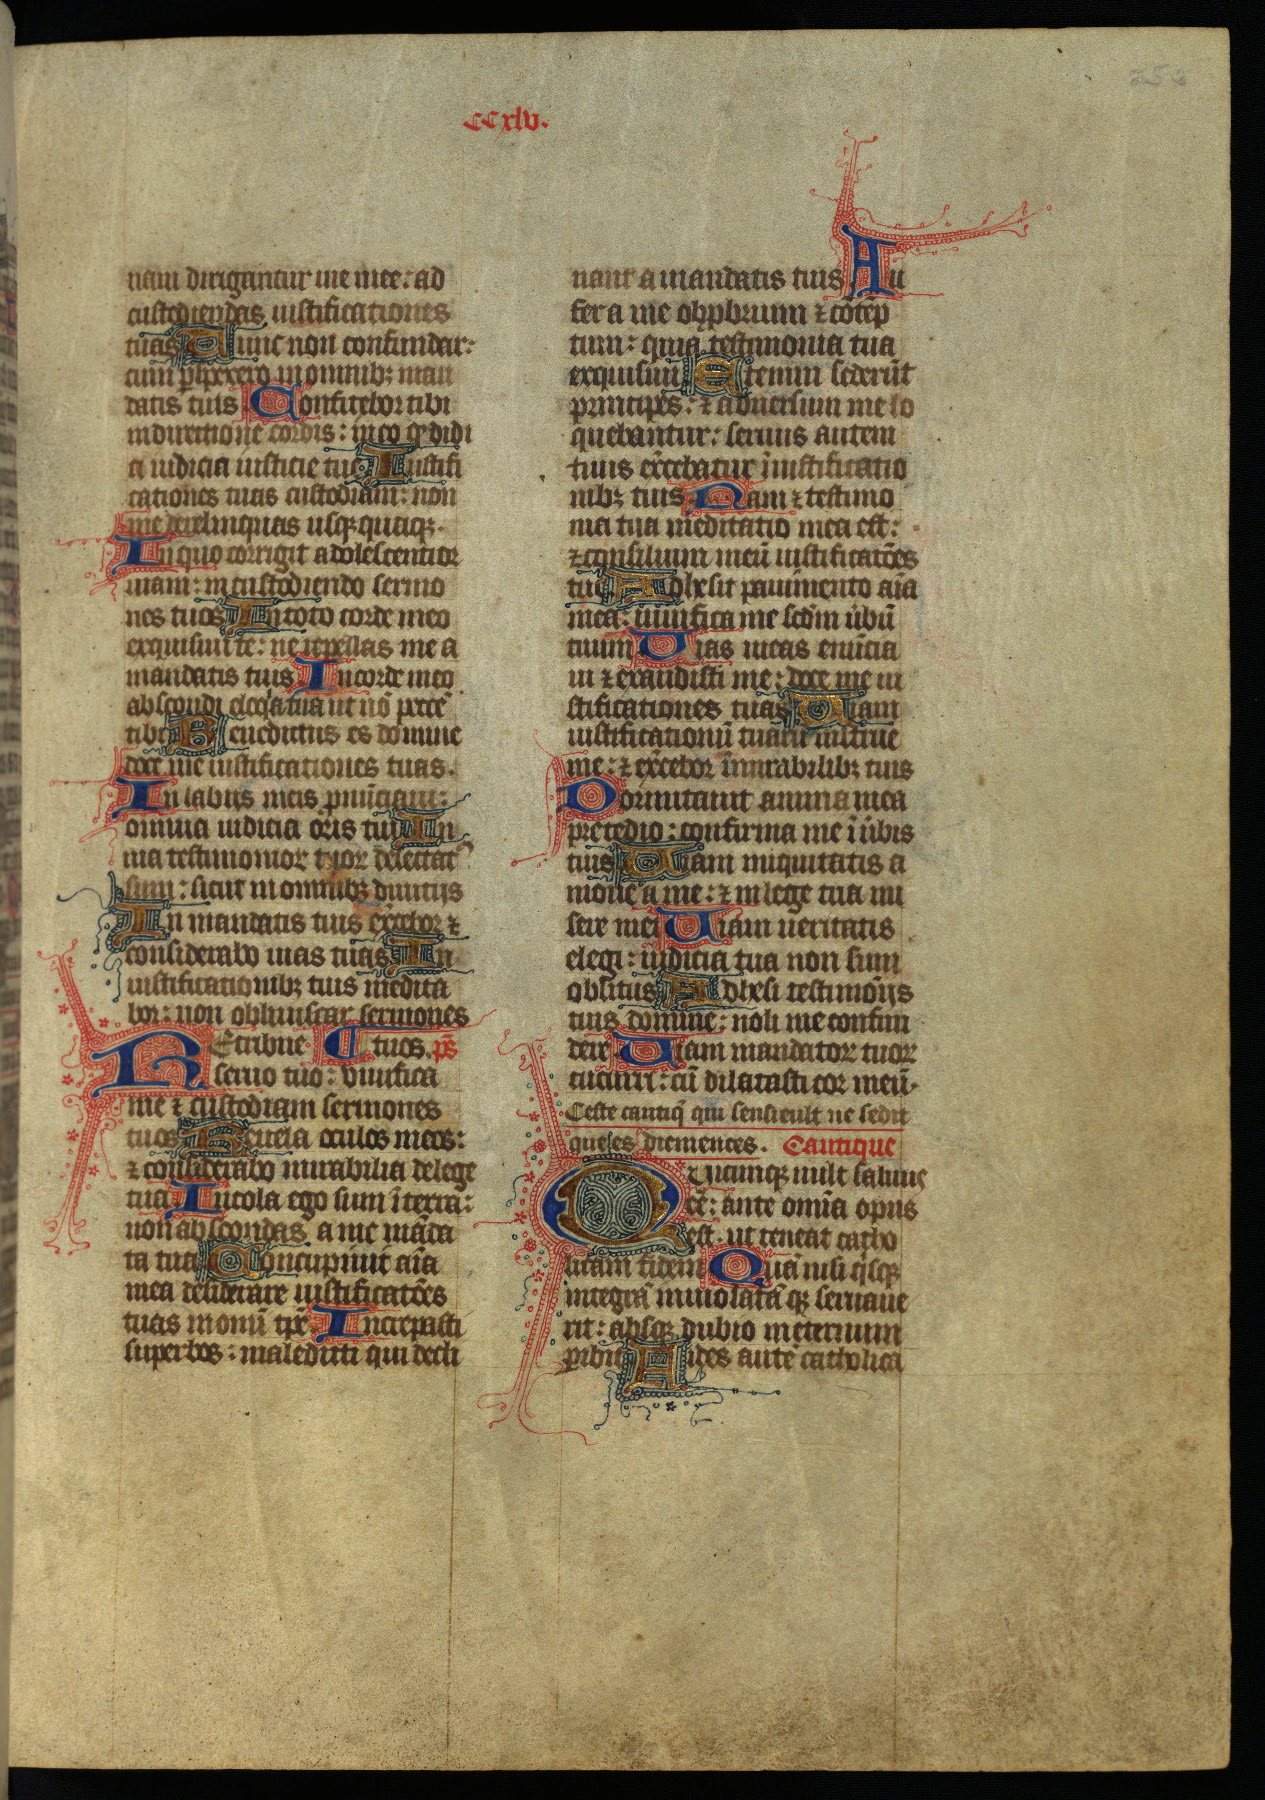 CCxlv.
252
nam dirigantur uie mee: ad
custodiendas iustificationes
tuas Tunc non confundar:
cum ꝑspexero in omnibꝫ man
datis tuis Confitebor tibi
in directione cordis: in eo qͦ didi
ci iudicia iusticie tue Iustifi
cationes tuas custodiam: non
me derelinquas usqꝫ quaqꝫ.
In quo corrigit adolescentior
uiam: in custodiendo sermo
nes tuos In toto corde meo
exquisiui te: ne repellas me a
mandatis tuis In corde meo
abscondi eloq̃a tua ut nõ peccẽ
tibi Benedictus es domine
doce me iustificationes tuas.
In labiis meis ꝓnũciaui:
omnia iudicia oris tui In
uia testimonior tuor delectatꝰ
sum: sicut in omnibꝫ diuitijs
In mandatis tuis ex̃cebor ⁊
considerabo uias tuas In
iustificationibꝫ tuis medita
bor: non obliuiscar sermones
REtribue tuos. p̃s
seruo tuo: viuifica
me ⁊ custodiam sermones
tuos Reuela oculos meos:
⁊ considerabo mirabilia de lege
tua Incola ego sum ĩ terra:
non abscondas a me mãda
ta tua Concupiuit aĩa
mea desiderare iustificatões
tuas in omĩ tp̃e Increpasti
superbos: maledicti qui decli
nant a mandatis tuis Au
fer a me obꝓbrium ⁊ cõtẽp
tum: quia testimonia tua
exquisiui Etenim sederũt
principes: ⁊ aduersum me lo
quebantur: seruus autem
tuus ex̃cebatur ĩ iustificatio
nibꝫ tuis Nam ⁊ testimo
nia tua meditatio mea est:
⁊ consilium meũ iustificatões
tue Adhesit pauimento aĩa
mea: uiuifica me scd̃m ũbũ
tuum Vias meas enũcia
ui ⁊ exaudisti me: doce me iu
stificationes tuas Uiam
iustificationũ tuarũ instrue
me: ⁊ ex̃cebor ĩ mirabilibꝫ tuis
Dormitauit anima mea
pre tedio: confirma me ĩ ũbis
tuis Uiam iniquitatis a
moue a me: ⁊ in lege tua mi
sere mei Uiam ueritatis
elegi: iudicia tua non sum
oblitus Adhesi testimonijs
tuis domine: noli me confun
dere Uiam mandator tuor
cucurri: cũ dilatasti cor meũ.
Ceste cantiq̃ qui sensieult ne sedit
que les diemences. Cantique
QUicumqꝫ uult saluus
eẽ: ante omĩa opus
est. ut teneat catho
licam fidem Quã nisi qͥsqꝫ
integrã inuiolatã qꝫ seruaue
rit: absqꝫ dubio in eternum
ꝑibit Fides autẽ catholica